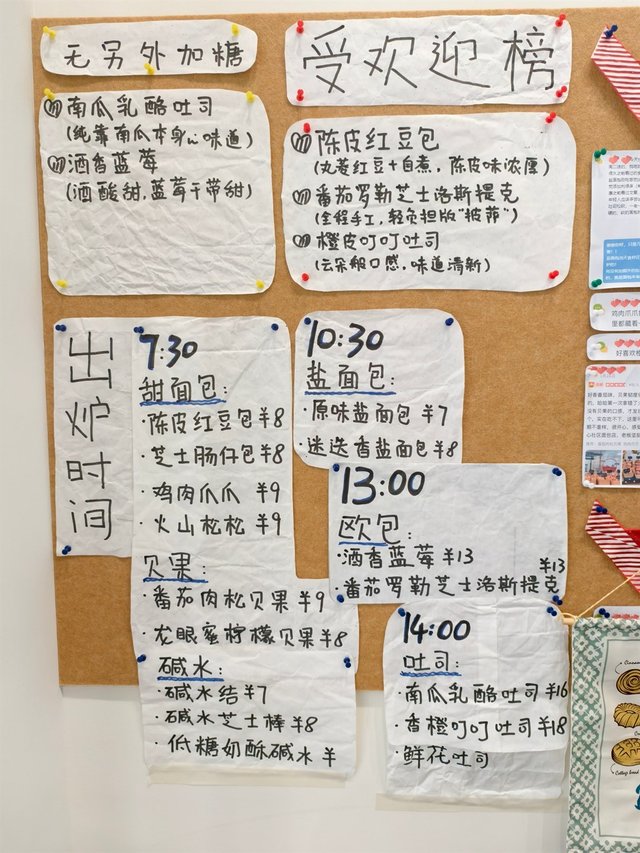 无另外加糖
南瓜乳酪吐司
(纯靠南瓜本身~味道)
酒香蓝莓
(酒酸甜,蓝莓干带甜)
受欢迎榜
陈皮红豆包
(丸菱红豆+自煮,陈皮味浓厚)
番茄罗勒芝士洛斯提克
(全程手工,轻负担版"披萨")
橙皮叮叮吐司
(云朵般口感,味道清新)
出炉时间
7:30
甜面包:
·陈皮红豆包¥8
·芝士肠仔包¥8
·鸡肉爪爪 ¥9
·火山松松 ¥9
贝果:
·番茄肉松贝果¥9
·龙眼蜜柠檬贝果¥8
碱水:
·碱水结¥7
·碱水芝士棒¥8
·低糖奶酥碱水¥
10:30
盐面包:
·原味盐面包¥7
·迷迭香盐面包¥8
13:00
欧包:
·酒香蓝莓¥13
¥13
·番茄罗勒芝士洛斯提克
14:00
吐司:
·南瓜乳酪吐司¥16
·香橙叮叮吐司¥18
·鲜花吐司
鸡肉爪爪
里都藏着
好喜欢